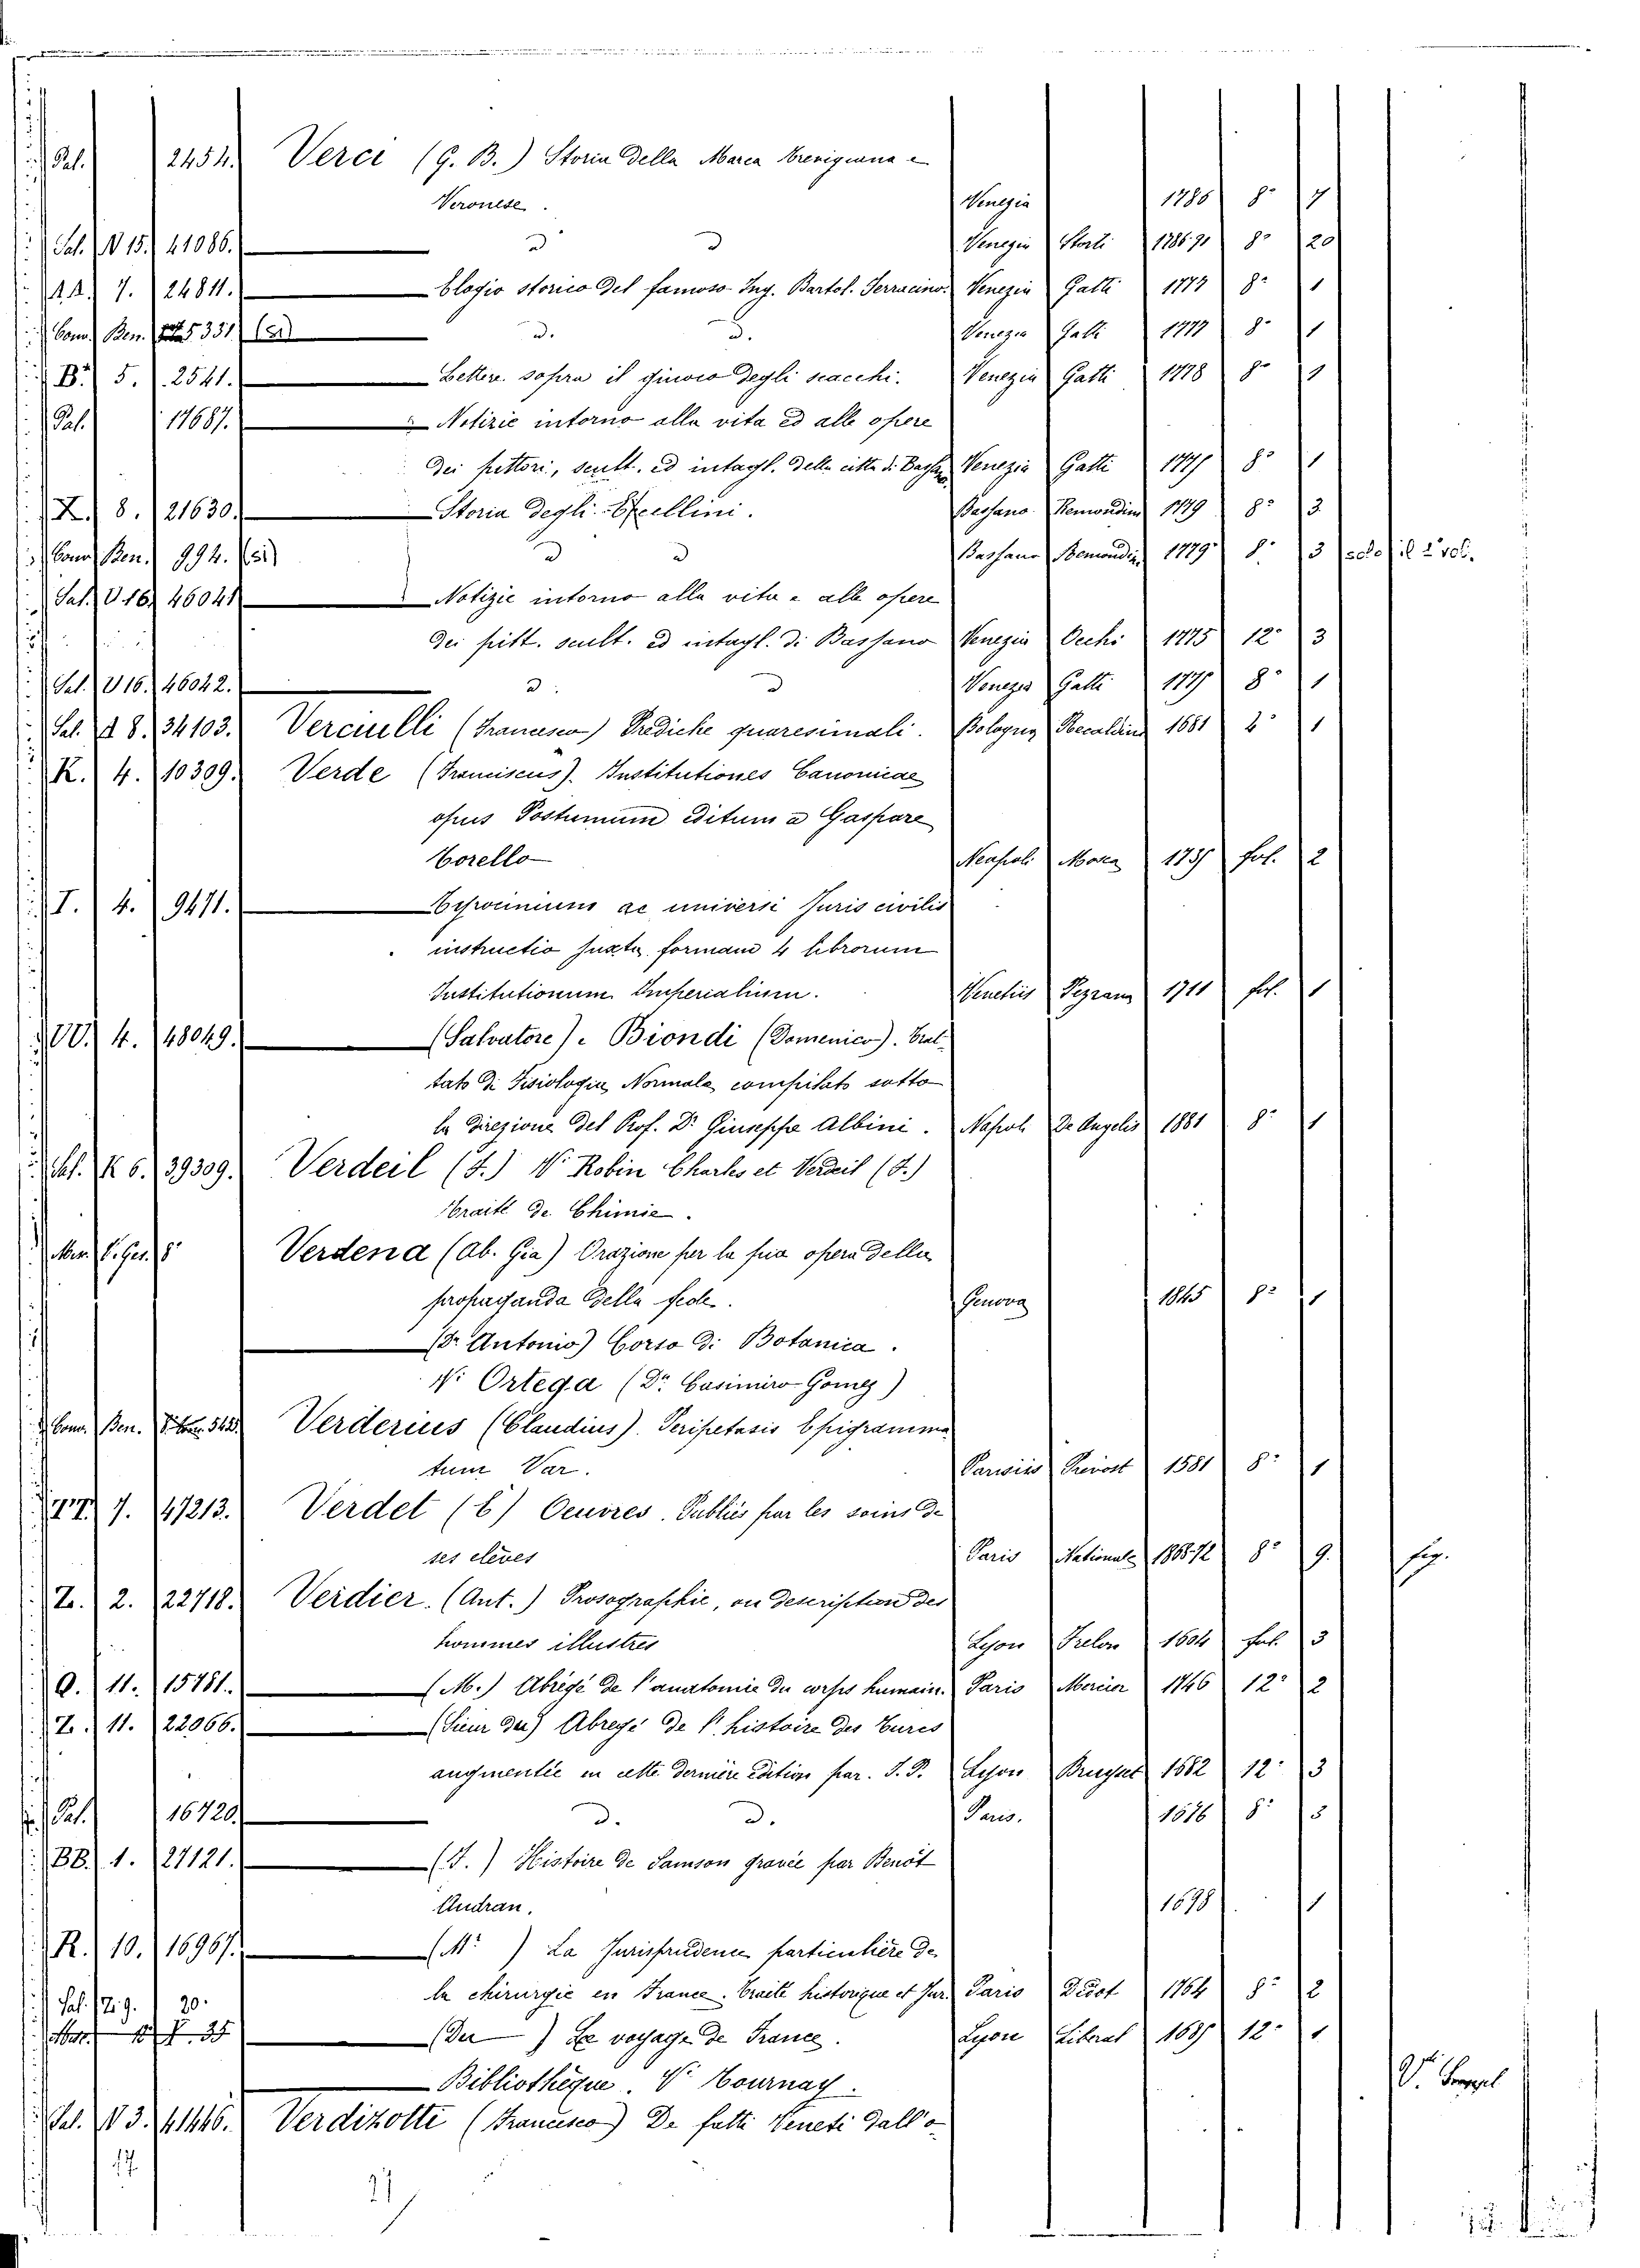 Pal. 2454. Verci (G. B.) Storia della Marca Trevigiana e
Veronese. Venezia 1786 8º 7
Sal. V 15. 41086. d d Venezia Storti 1786-91 8º 20
AA. 7. 24811. Elogio storico del famoso Ing. Bartol. Ferracino. Venezia Gatti 1777 8º 1
Conv. Ben. 5331 (51) d. d. Venezia Gatti 1777 8º 1
B. 5. 2541. Lettere sopra il giuoco degli scacchi. Venezia Gatti 1778 8º 1
Pal. 17687. Notizie intorno alla vita ed alle opere
dei pittori, scult. ed intagl. della città di Bassano Venezia Gatti 1777 8º 1
X. 8. 21630. Storia degli Eccellini. Bassano Remondini 1779 8º 3
Conv. Ben. 994. (51) d d Bassano Remondini 1779 8º 3 solo il 2º vol.
Sal. V 16. 46041 Notizie intorno alla vita e alle opere
dei pitt. scult. ed intagl. di Bassano Venezia Occhi 1775 12º 3
Sal. V 16. 46042. d. d Venezia Gatti 1777 8º 1
Sal. A 8. 34103. Verciulli (Francesco) Prediche quaresimali. Bologna Recaldini 1681 4º 1
K. 4. 10309. Verde (Franciscus). Institutiones Canonicae
opus Postumum editum a Gaspare
Torello Neapoli Mosca 1737 fol. 2
I. 4. 9471. Tyrocinium ac universi Juris civilis
instructio juxta formam 4 librorum
Institutionum Imperialium. Venetiis Pezzana 1711 fol. 1
VV. 4. 48049. (Salvatore) e Biondi (Domenico). Trat-
tato di Fisiologia Normale compilato sotto
la direzione del Prof. Dr Giuseppe Albini. Napoli De Angelis 1881 8º 1
Sal. K 6. 39309. Verdeil (F.) V. Robin Charles et Verdeil (F.)
Traité de Chimie.
Verdena (Ab. Gia) Orazione per la pia opera della
propaganda della fede. Genova 1845 8º 1
(Dr Antonio) Corso di Botanica.
V. Ortega (Dr. Casimiro Gomez)
Conv. Ben. Verderius (Claudius). Peripetasis Epigramma-
tum Var. Parisiis Prevost 1581 8º 1
TT. 7. 47213. Verdet (E) Oeuvres. Publiés par les soins de
ses eleves Paris Nationale 1868-72 8º 9. fig.
Z. 2. 22718. Verdier. (Ant.) Prosographie, ou description des
hommes illustres Lyon Frelon 1604 fol. 3
Q. 11. 15781. (M.) Abrégé de l'anatomie du corps humain. Paris Mercier 1746 12º 2
Z. 11. 22066. (Sieur du) Abregé de l'histoire des Turcs
augmentée en cette dernière edition par. J. P. Lyon Bruyset 1682 12º 3
Pal. 16720. d. d. Paris. 1676 8º 3
BB. 1. 27121. (F.) Histoire de Samson gravée par Benôt
Audran. 1698 1
R. 10. 16967. (Mr ) La Jurisprudence particulière de
la chirurgie en France. Traité historique et Jur. Paris Didot 1764 8º 2
Sal. Z. 9. 20.
(Du ) Le voyage de France. Lyon Liberal 1687 12º 1
Bibliothèque. V. Tournay.
Sal. V 3. 41446. Verdizotti (Francesco) De fatti Veneti dall'o-
17.
27